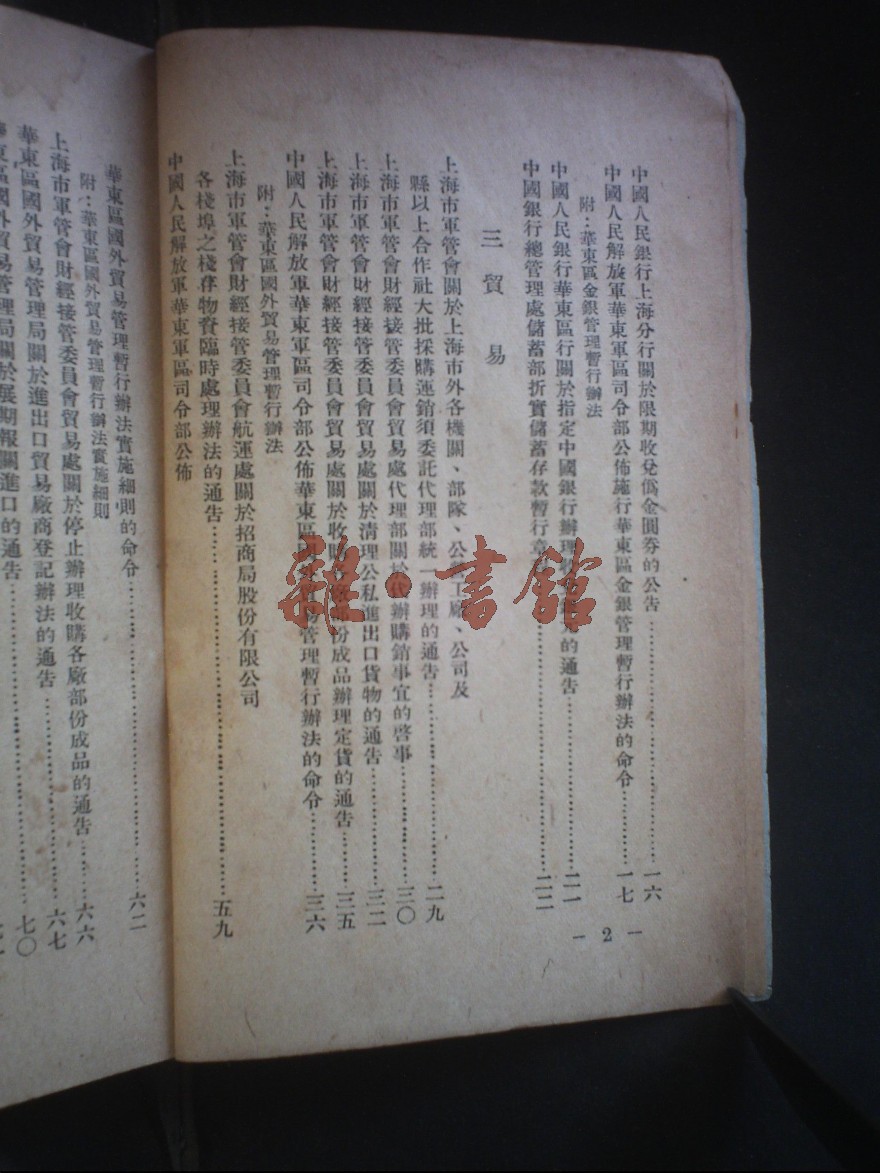 中國人民銀行上海分行關於限期收兌僞金圓券的公告…………一六
中國人民解放軍華東軍區司令部公佈施行華東區金銀管理暫行辦法的命令…………一七
附：華東區金銀管理暫行辦法
中國人民銀行華東區行關於指定中國銀行辦理收 的通告…………二一
中國銀行總管理處儲蓄部折實儲蓄存款暫行章 …………二二
三 貿 易
上海市軍管會關於上海市外各機關、部隊、公營工廠、公司及
縣以上合作社大批採購運銷須委託代理部統一辦理的通告…………二九
上海市軍管會財經接管委員會貿易處代理部關於代辦購銷事宜的啓事…………三〇
上海市軍管會財經接管委員會貿易處關於清理公私進出口貨物的通告…………三二
上海市軍管會財經接管委員會貿易處關於收購各廠部份成品辦理定貨的通告…………三五
中國人民解放軍華東軍區司令部公佈華東區國外貿易管理暫行辦法的命令…………三六
附：華東區國外貿易管理暫行辦法
上海市軍管會財經接管委員會航運處關於招商局股份有限公司
各棧埠之棧存物資臨時處理辦法的通告…………五九
中國人民解放軍華東軍區司令部公佈
— 2 —
華東區國外貿易管理暫行辦法實施細則的命令…………六二
附：華東區國外貿易管理暫行辦法實施細則
上海市軍管會財經接管委員會貿易處關於停止辦理收購各廠部份成品的通告…………六六
華東區國外貿易管理局關於進出口貿易廠商登記辦法的通告…………六七
華東區國外貿易管理局關於展期報關進口的通告…………七〇
雜·書館